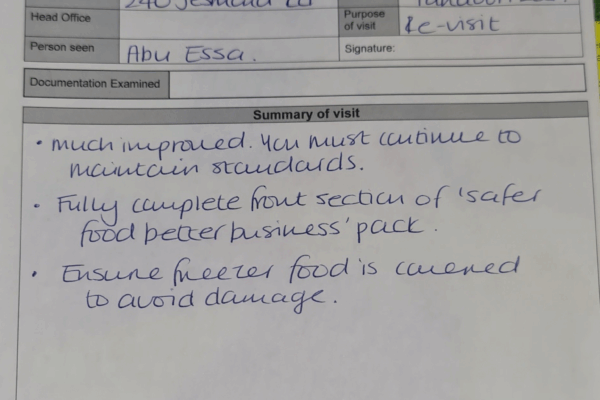 240
Head Office
Purpose of visit
Re-visit
Person seen
Abu Essa.
Signature:
Documentation Examined
Summary of visit
• Much improved. You must continue to
maintain standards.
• Fully complete front section of 'safer
food better business' pack.
• Ensure freezer food is covered
to avoid damage.